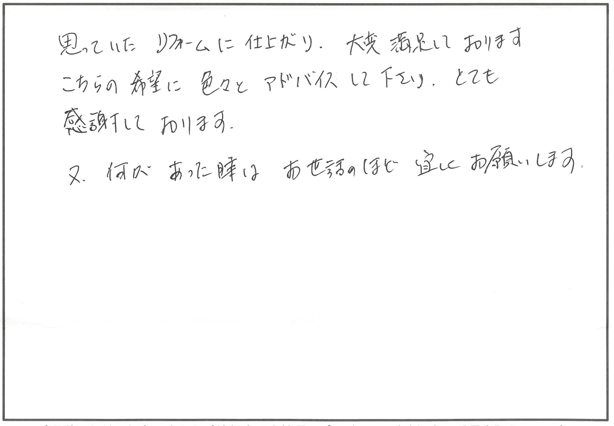 思っていた リフォームに 仕上がり. 大変 満足して おります
こちらの 希望に 色々と アドバイス して 下さり. とても
感謝して おります.
又. 何か あった時は お世話のほど 宜しく お願いします.